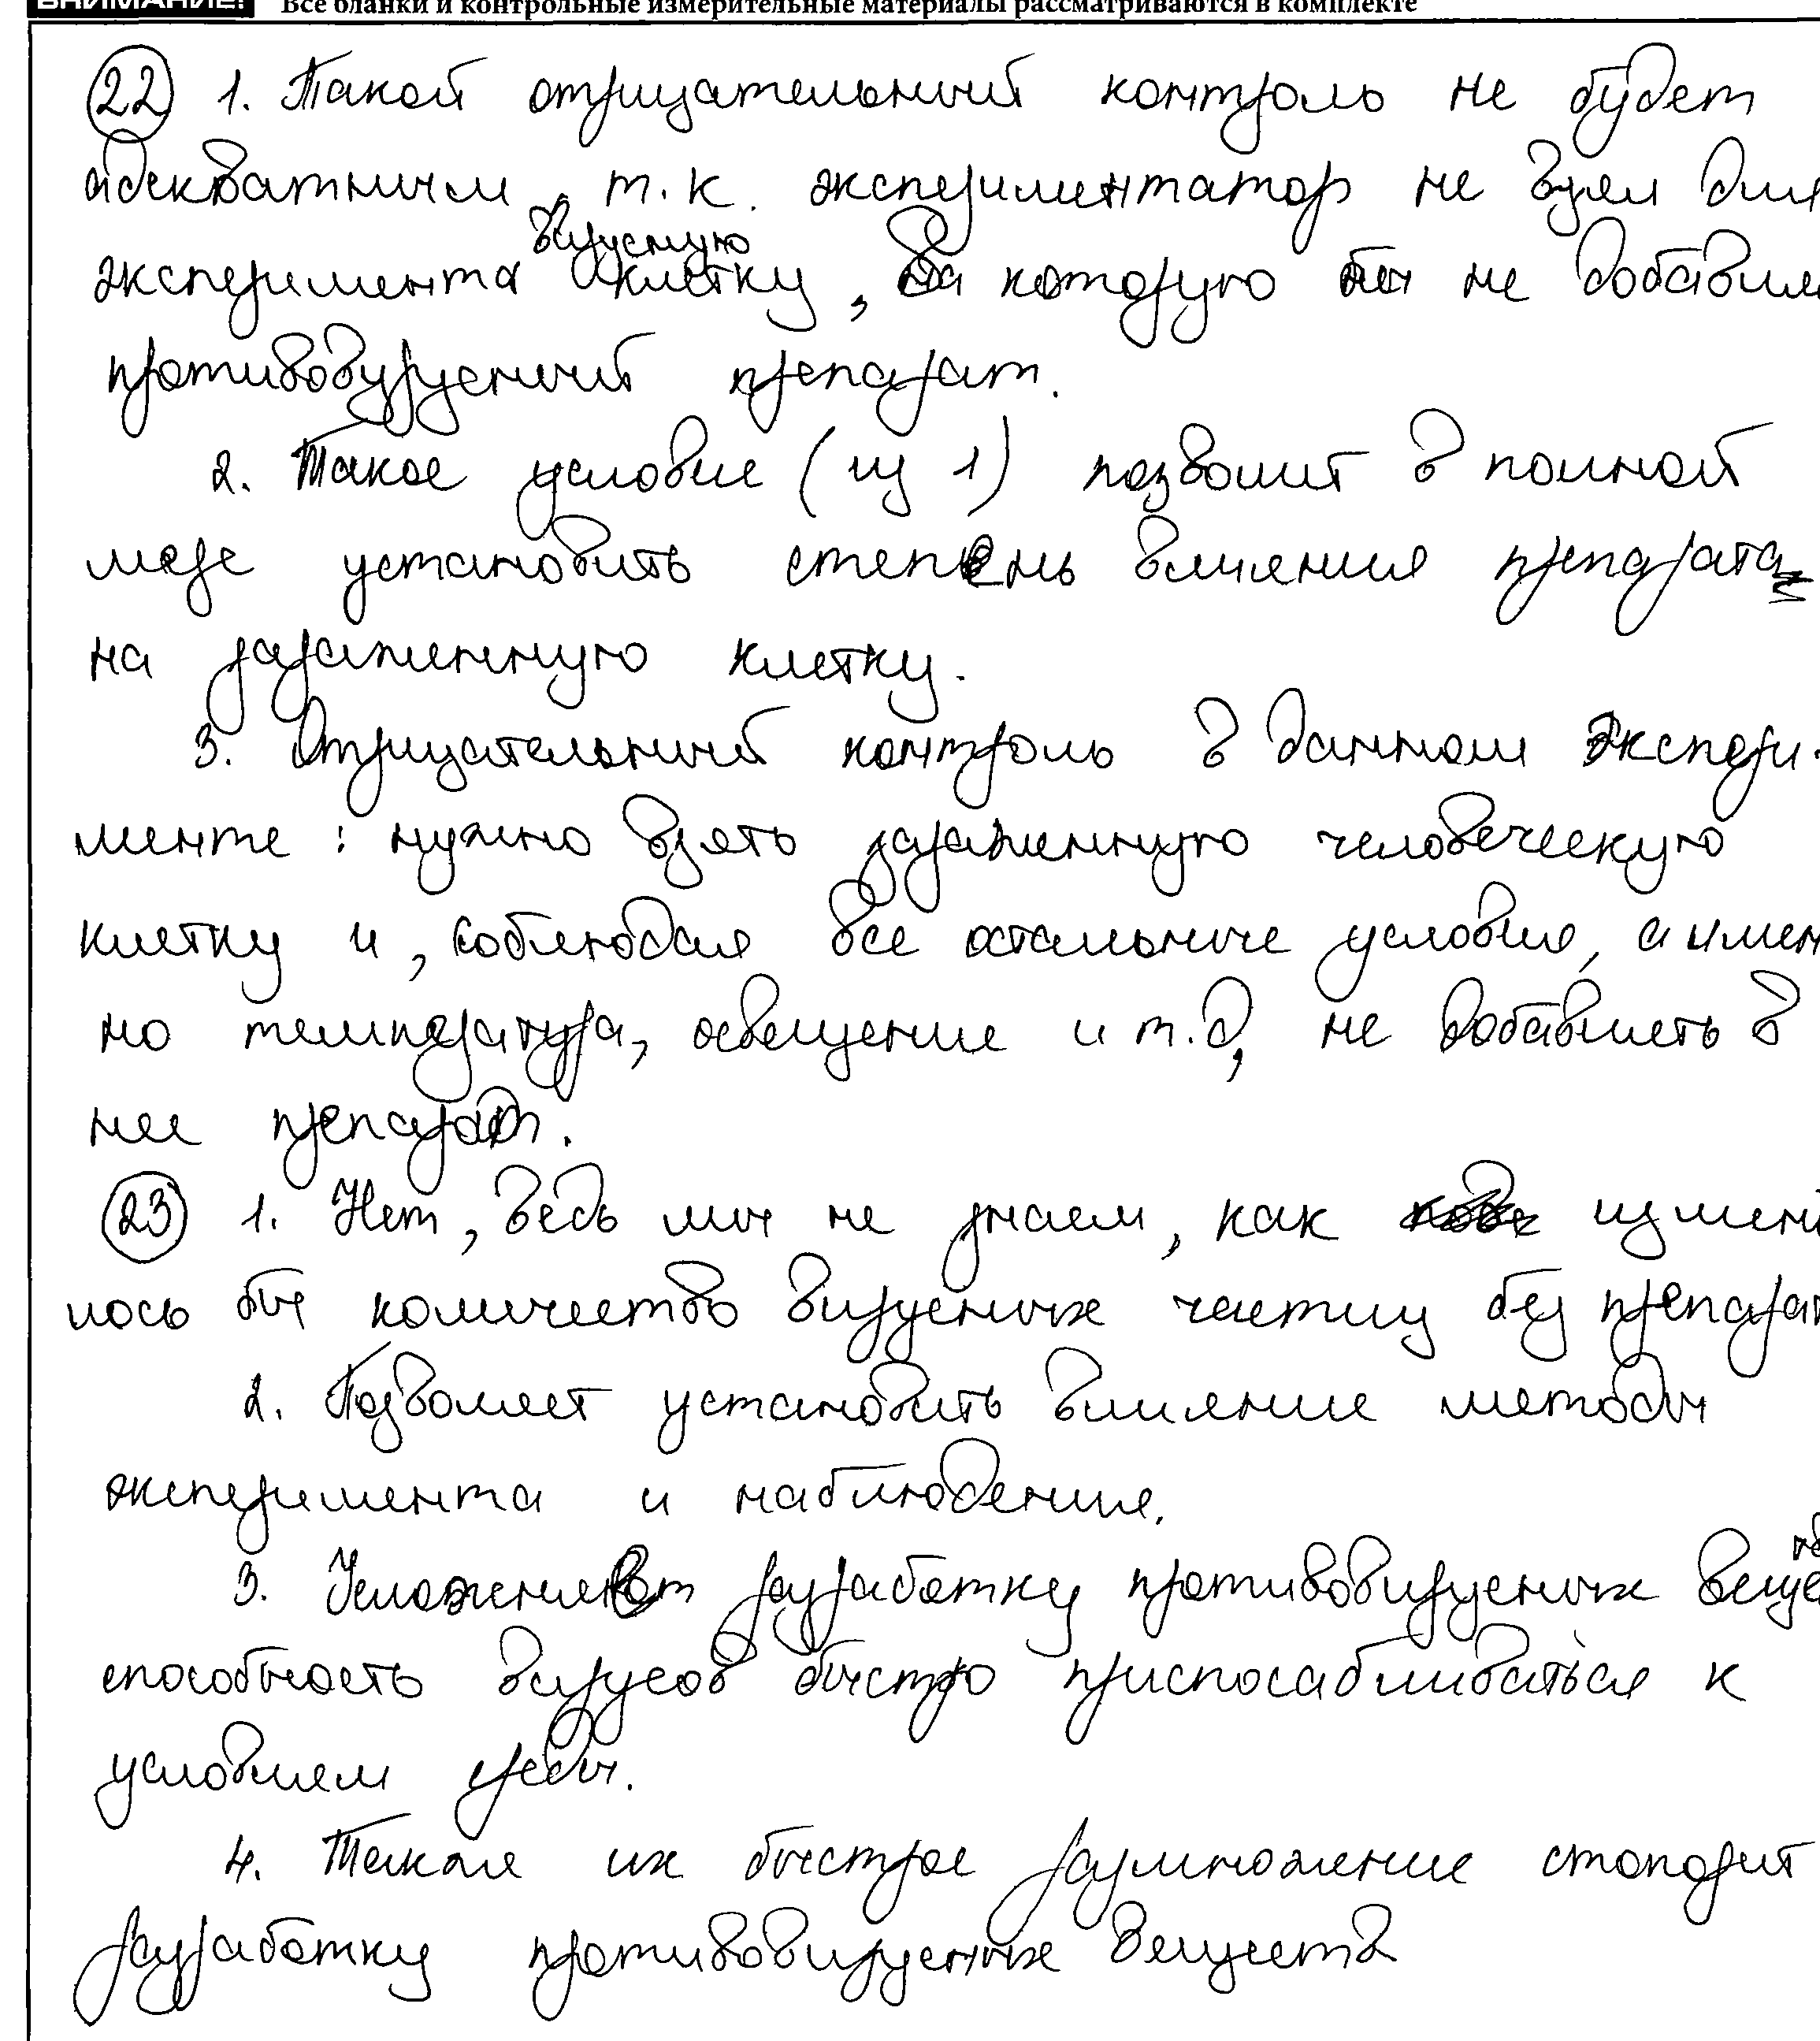 ВНИМАНИЕ! Все бланки и контрольные измерительные материалы рассматриваются в комплекте
22 1. Такой отрицательный контроль не будет
адекватным, т.к. экспериментатор не взял для
вирусную
эксперимента клетку, в которую бы не добавил
противовурусный препарат.
2. Такое условие (из 1) позволит в полной
мере установить степень влияния препарата
на зараженную клетку.
3. Отрицательный контроль в данном экспери-
менте: нужно взять зараженную человеческую
клетку и, соблюдая все остальные условия, а имен
но температура, освещение и т.д, не добавлять в
нее препарат.
23 1. Нет, ведь мы не знаем, как измени
лось бы количество вирусных частиц без препарат
2. Позволяет установить влияние методы
эксперимента и наблюдения.
3. Усложняет разработку противовирусных веще
способность вирусов быстро приспосабливаться к
условиям среды.
4. Также их быстрое размножение стопорит
разработку противовирусных веществ